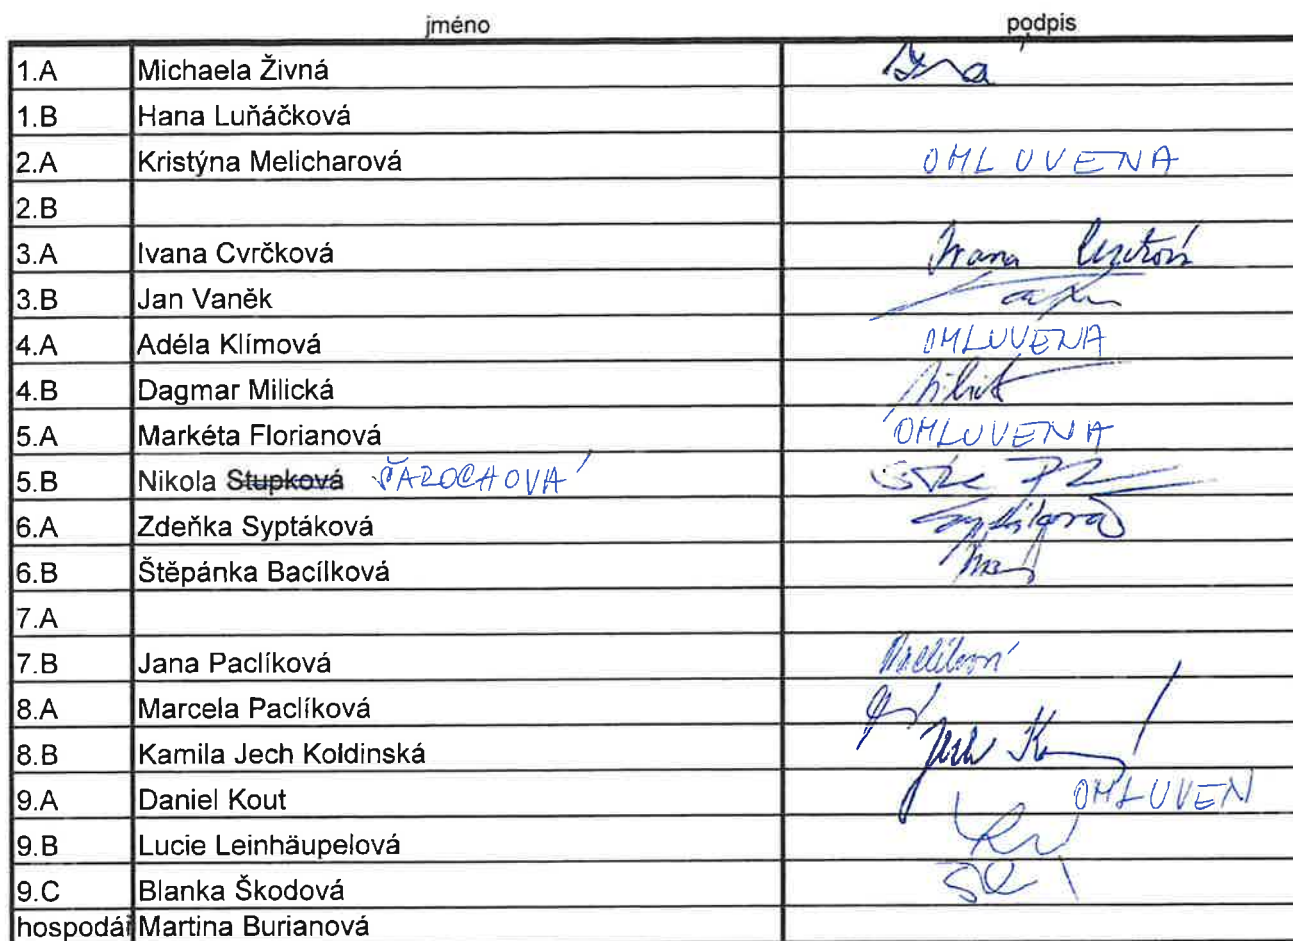 jméno podpis
1.A Michaela Živná
1.B Hana Luňáčková
2.A Kristýna Melicharová OMLUVENA
2.B
3.A Ivana Cvrčková Ivana Cvrčková
3.B Jan Vaněk
4.A Adéla Klímová OMLUVENA
4.B Dagmar Milická
5.A Markéta Florianová OMLUVENA
5.B Nikola Stupková
6.A Zdeňka Syptáková
6.B Štěpánka Bacílková
7.A
7.B Jana Paclíková
8.A Marcela Paclíková
8.B Kamila Jech Koldinská Jech K
9.A Daniel Kout OMLUVEN
9.B Lucie Leinhäupelová
9.C Blanka Škodová
hospodář Martina Burianová